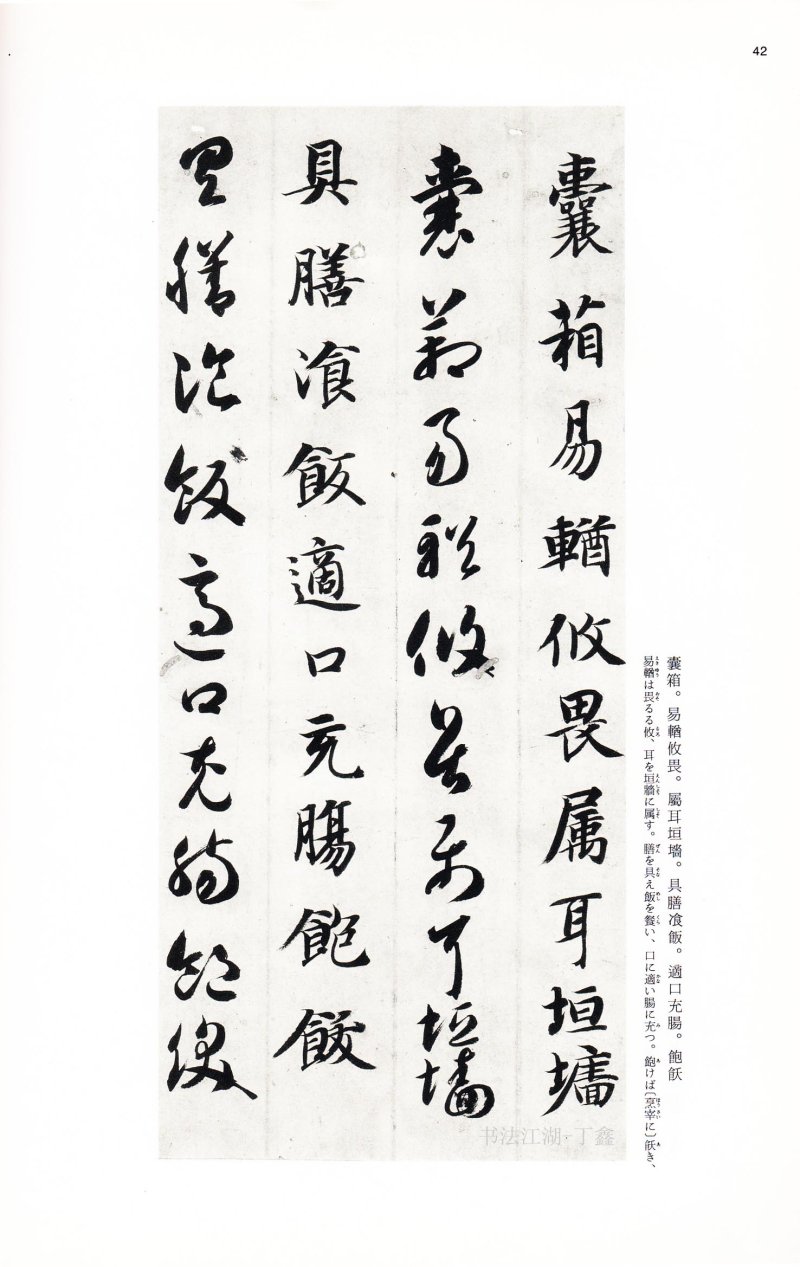 42
囊箱易輶攸畏属耳垣墻
囊箱易輶攸畏属耳垣墻
具膳飡飯適口充腸飽飫
具膳飡飯適口充腸飽飫
囊箱。易輶攸畏。屬耳垣墻。具膳飡飯。適口充腸。飽飫
易輶は畏るる攸、耳を垣牆に属す。膳を具え飯を餐い、口に適い腸に充つ。飽けば〔烹宰に〕飫き、
书法江湖·丁鑫